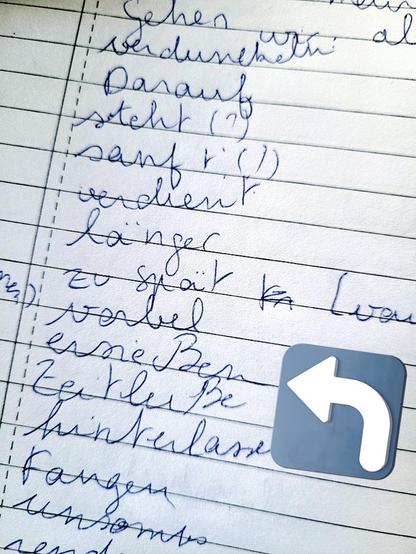 Gehen wir al
verdunckeln
Darauf
steht (?)
sanft (?)
verdient
länger
zu spät
vorbei
ersießen
Zeitließe
hinterlasse
Fangen
umsomst